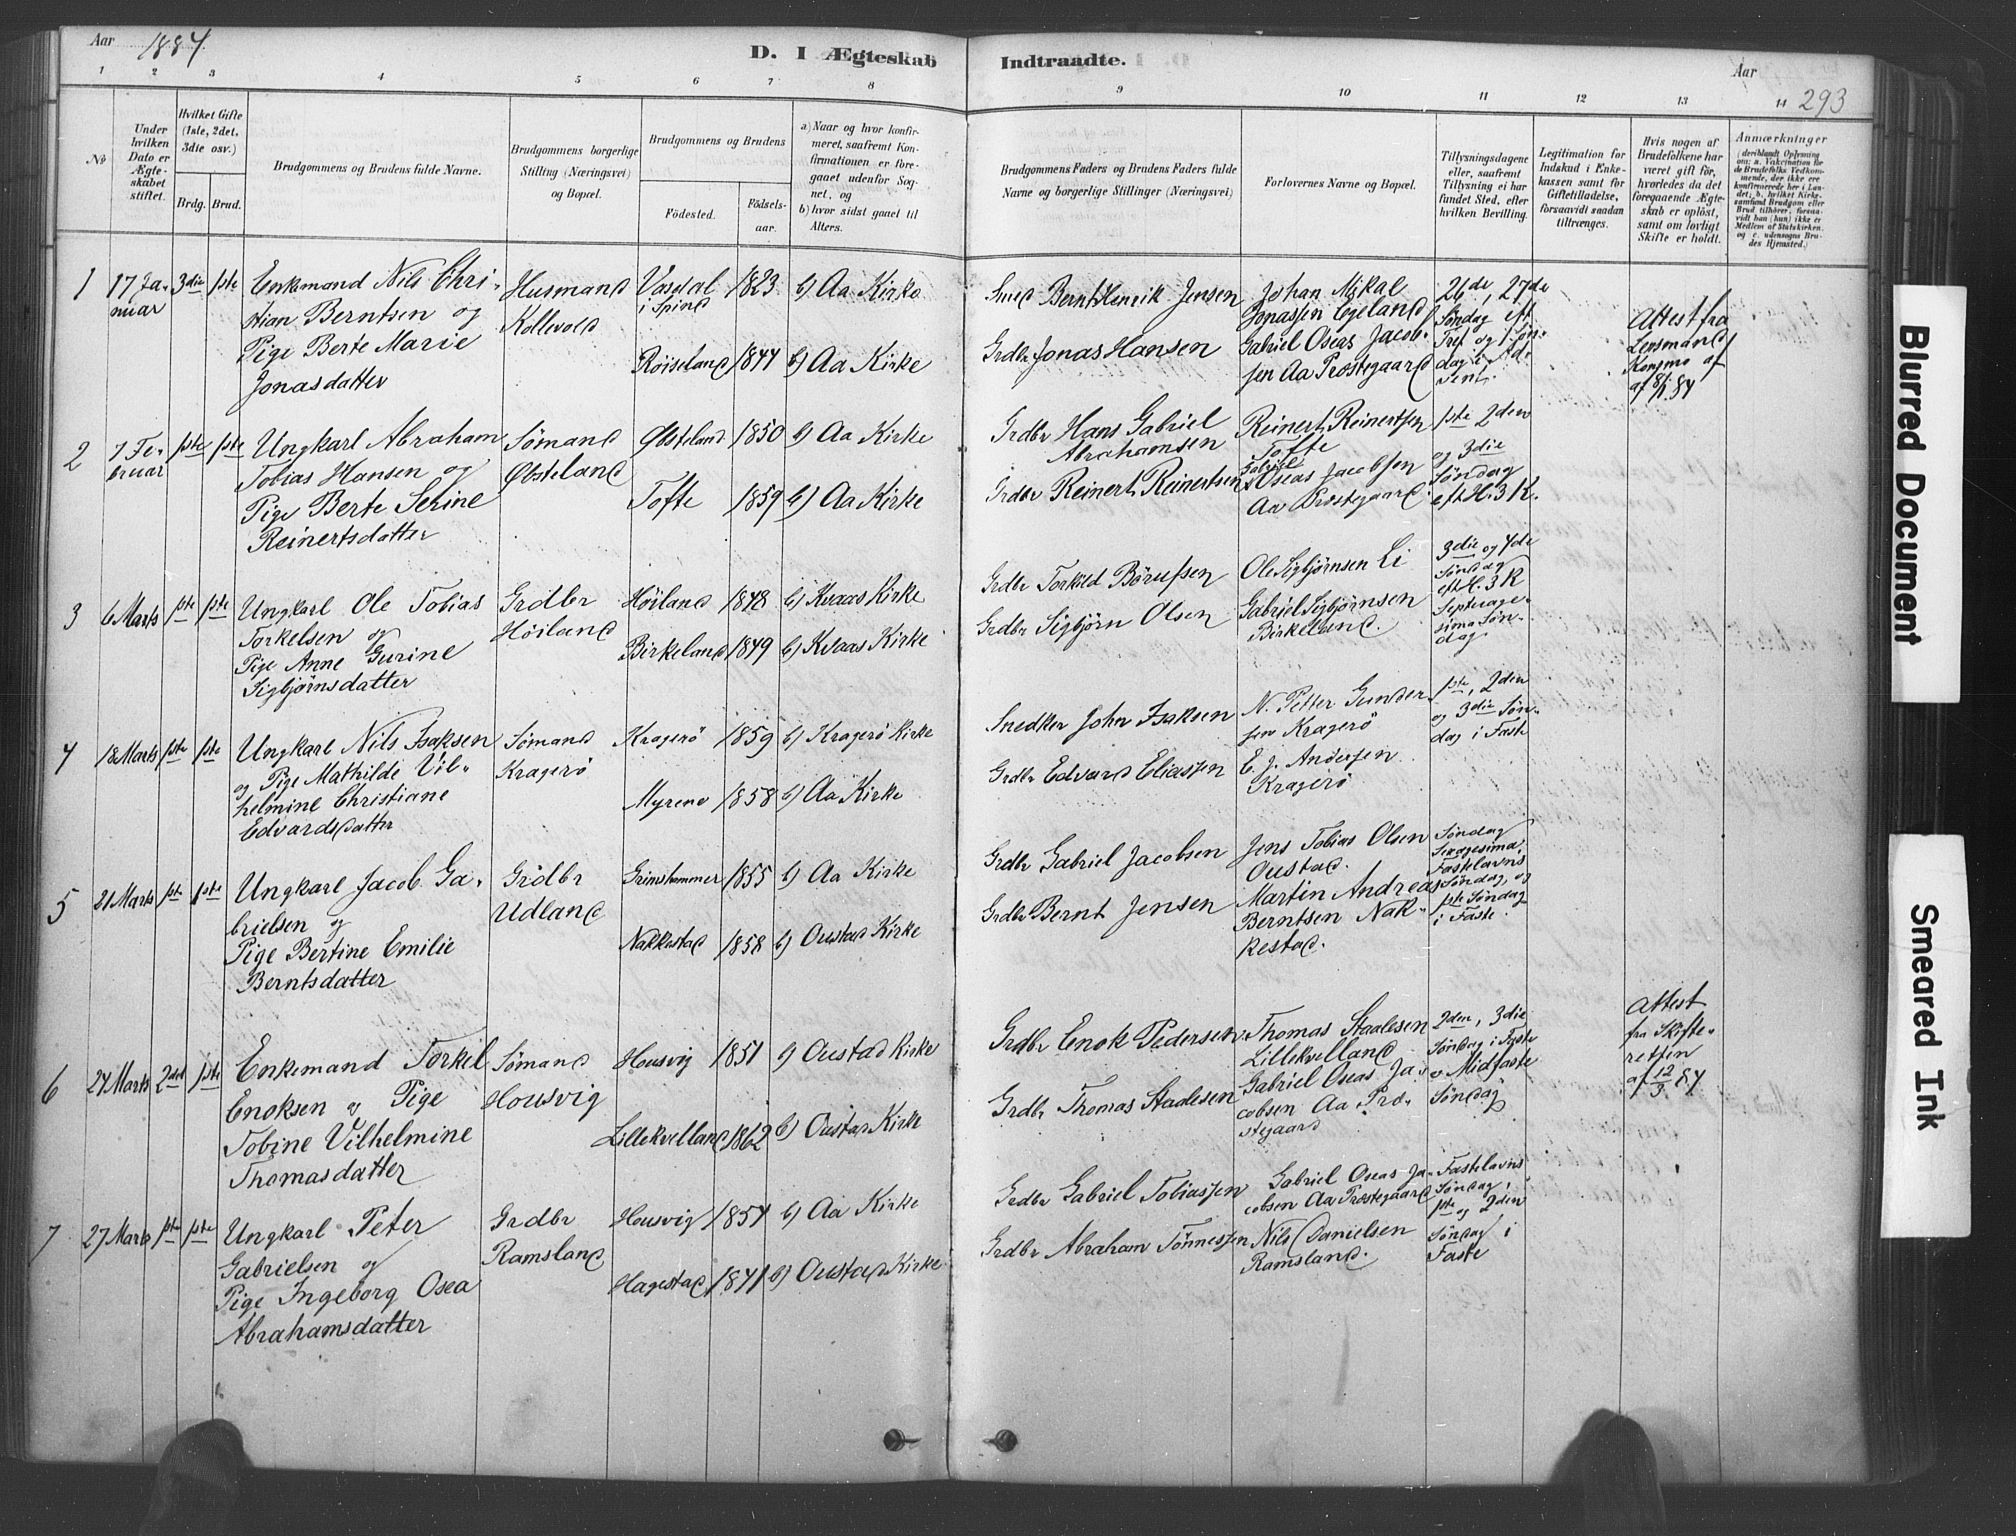 Aar 1884
D. I Ægteskab Indtraadte.
Aar
293
1 2 3 4 5 6 7 8 9 10 11 12 13 14
No
Under hvilken Dato er Ægteskabet stiftet.
Hvilket Gifte (1ste, 2det, 3die osv.)
Brdg. Brud.
Brudgommens og Brudens fulde Navne.
Brudgommens borgerlige Stilling (Næringsvei) og Bopæl.
Brudgommens og Brudens
Födested.
Födselsaar.
a) Naar og hvor konfirmeret, saafremt Konfirmationen er foregaaet udenfor Sognet, og
b) hvor sidst gaaet til Alters.
Brudgommens Faders og Brudens Faders fulde Navne og borgerlige Stillinger (Næringsvei)
Forlovernes Navne og Bopæl.
Tillysningsdagene eller, saafremt Tillysning ei har fundet Sted, efter hvilken Bevilling.
Legitimation for Indskud i Enkekassen samt for Giftetilladelse, forsaavidt saadan tiltrænges.
Hvis nogen af Brudefolkene har været gift för, hvorledes da det foregaaende Ægteskab er oplöst, samt om lovligt Skifte er holdt.
Anmærkninger
(deriblandt Oplysning om: a. Vakcination for de Brudefolks Vedkommende, der ikke ere konfirmerede her i Landet; b. hvilket Kirkesamfund Brudgom eller Brud tilhörer, forsaavidt han (hun) ikke er Medlem af Statskirken, og c. udensogns Brudes Hjemsted.)
1
17 Januar
3die 1ste
Enkemand Nils Chri-
stian Berntsen og
Pige Berte Marie
Jonasdatter
Husmand
Kollevold
Vasdal
i Spind
1823
b) Aa Kirke
Röiseland 1844 b) Aa Kirke
Smed Bernt Henrik Jensen
Grdbr Jonas Hansen
Johan Mikal
Jonassen Egeland
Gabriel Oseas Jacob-
sen Aa Præstegaard
26de, 27de
Søndag eft
Tref og 1 Søn-
dag
Attest fra
Lensmand
Kongmo af
af 8/1 84
2
7 Fe-
bruar
1ste 1ste
Ungkarl Abraham
Tobias Hansen og
Pige Berte Serine
Reinertsdatter
Sømand
Øbsteland
Øbsteland 1850 b) Aa Kirke
Tofte 1859 b) Aa Kirke
Grdbr Hans Gabriel
Abrahamsen
Grdbr Reinert Reinertsen
Reinert Reinertsen
Tofte
Gabriel
Oseas Jacobsen
Aa Præstegaard
1ste 2den
og 3die
Søndag
eft H. 3 K.
3
6 Marts
1ste 1ste
Ungkarl Ole Tobias
Torkelsen og
Pige Anne Gurine
Sigbjørnsdatter
Grdbr
Höiland
Höiland 1848 b) Kvaas Kirke
Birkeland 1849 b) Kvaas Kirke
Grdbr Torkild Börufsen
Grdbr Sigbjörn Olsen
Ole Sigbjørnsen Li
Gabriel Sigbjørnsen
Birkeland.
3die og 4de
Søndag
eft H. 3 K
Septuage-
sima Søn-
dag
4
18 Marts
1ste 1ste
Ungkarl Nils Isaksen
og Pige Mathilde Vil-
helmine Christiane
Edvardsdatter
Sømand
Kragerö
Kragerö 1859 b) Kragerö Kirke
Myrene 1858 b) Aa Kirke
Snedker John Isaksen
Grdbr Edvard Eliassen
N. Petter Gunder-
sen Kragerö
E. J. Andersen
Kragerö
1ste, 2den
og 3die Søn-
dag i Faste
5
21 Marts
1ste 1ste
Ungkarl Jacob Ga-
brielsen og
Pige Bertine Emilie
Berntsdatter
Grdbr
Udland
Grimshammer 1855 b) Aa Kirke
Nakkestad 1858 b) Oustad Kirke
Grdbr Gabriel Jacobsen
Grdbr Bernt Jensen
Jens Tobias Olsen
Oustad.
Martin Andreas
Berntsen Nak-
kestad.
Søndag
Sexagesima,
Fastelavns
Søndag, og
1ste Søndag
i Faste
6
24 Marts
2det 1ste
Enkemand Torkil
Enoksen og Pige
Tobine Vilhelmine
Thomasdatter
Sømand
Housvig
Housvig 1851 b) Oustad Kirke
Lillekvelland 1862 b) Oustad Kirke
Grdbr Enok Pedersen
Grdbr Thomas Staalesen
Thomas Staalesen
Lillekvelland
Gabriel Oseas Ja-
cobsen Aa Præ-
stegaard
2den, 3die
Søndag i Faste
o Midfaste
Søndag
Attest
fra Skifte-
retten
af 12/3 84
7
27 Marts
1ste 1ste
Ungkarl Peter
Gabrielsen og
Pige Ingeborg Osea
Abrahamsdatter
Grdbr
Ramsland
Housvig 1854 b) Aa Kirke
Hagestad 1841 b) Oustad Kirke
Grdbr Gabriel Tobiassen
Grdbr Abraham Tönnessen
Gabriel Oseas Ja-
cobsen Aa Præstegaard
Nils Danielsen
Ramsland.
Fastelavns
Søndag,
1ste og 2den
Søndag i
Faste
Blurred Document
Smeared Ink